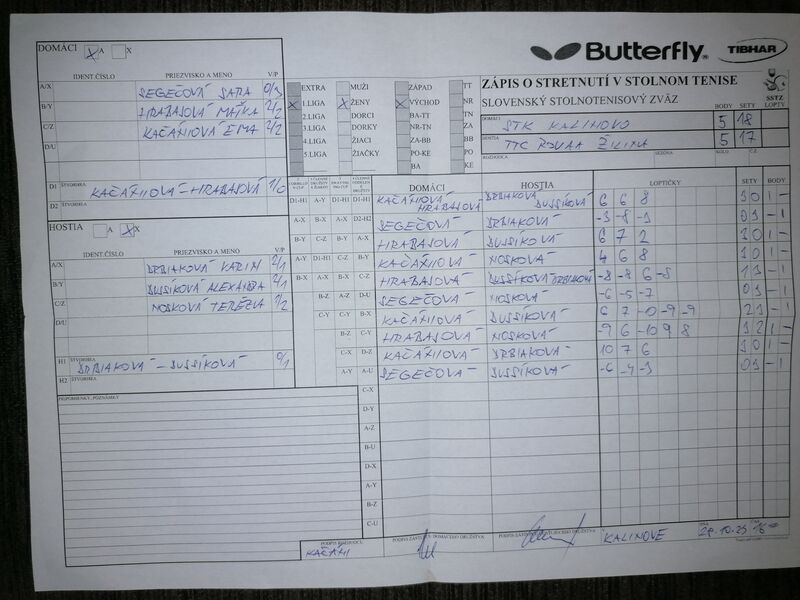 DOMÁCI X A X
Butterfly. TIBHAR
IDENT.ČÍSLO PRIEZVISKO A MENO V/P
A/X SEGEČOVÁ SARA 0/3
B/Y HRABAJOVÁ MAJKA 2/2
C/Z KAČÁNIOVÁ EMA
D/U
D1 ŠTVORHRA KAČÁNIOVÁ - HRABAJOVÁ 1/0
D2 ŠTVORHRA
EXTRA MUŽI ZÁPAD TT
X 1.LIGA X ŽENY X VÝCHOD NR
2.LIGA DORCI BA-TT TN
3.LIGA DORKY NR-TN ZA
4.LIGA ŽIACI ZA-BB BB
5.LIGA ŽIAČKY PO-KE PO
BA KE
ZÁPIS O STRETNUTÍ V STOLNOM TENISE
SLOVENSKÝ STOLNOTENISOVÝ ZVÄZ
SSTZ
BODY SETY LOPTY
DOMÁCI STK KALINOVO 5 18
HOSTIA TTC ŽILINA 5 17
ROZHODCA SEZÓNA KOLO Č.Z.
HOSTIA A X X
IDENT.ČÍSLO PRIEZVISKO A MENO V/P
A/X DRBIAKOVÁ KARIN 2/1
B/Y DUSSÍKOVÁ ALEXANDRA 2/1
C/Z NOSKOVÁ TERÉZIA 1/2
D/U
H1 ŠTVORHRA DRBIAKOVÁ - DUSSÍKOVÁ 0/1
H2 ŠTVORHRA
PRIPOMIENKY, POZNÁMKY
DOMÁCI HOSTIA LOPTIČKY SETY BODY
D1-H1 A-Y D1-H1 D1-H1 KAČÁNIOVÁ HRABAJOVÁ DRBIAKOVÁ DUSSÍKOVÁ 6 6 8 3 0 1 -
A-X B-X A-X D2-H2 SEGEČOVÁ DRBIAKOVÁ -3 -8 -3 0 3 - 1
B-Y C-Z B-Y A-X HRABAJOVÁ DUSSÍKOVÁ 6 7 2 3 0 1 -
A-Y D1-H1 C-Z B-Y KAČÁNIOVÁ NOSKOVÁ 4 6 8 3 0 1 -
B-X A-X B-X C-Z HRABAJOVÁ DRBIAKOVÁ -8 -8 6 -8 1 3 - 1
B-Z A-Z D-U SEGEČOVÁ NOSKOVÁ -6 -5 -7 0 3 - 1
C-Y C-Y B-X KAČÁNIOVÁ DUSSÍKOVÁ 6 7 -0 -9 -9 2 3 - 1
B-Z C-Y HRABAJOVÁ NOSKOVÁ -9 6 -10 9 8 3 2 1 -
C-X D-Z KAČÁNIOVÁ DRBIAKOVÁ 10 7 6 3 0 1 -
A-Y A-U SEGEČOVÁ DUSSÍKOVÁ -6 -4 -3 0 3 - 1
C-X
D-Y
A-Z
B-U
D-X
A-Y
B-Z
C-U
PODPIS ROZHODCU KAČÁNI
KALINOVE 29.10.23 16